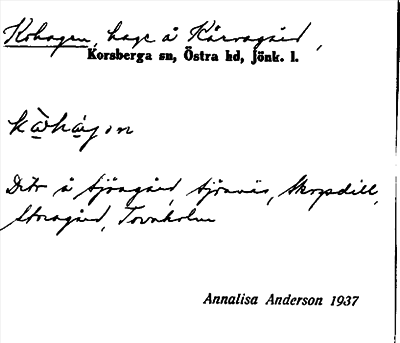 Kohagen, hage å Kårvagård,
Korsberga sn, Östra hd, Jönk. l.
kòhàgen
Dito å Sjöagård, Sjöanäs, Skogsdill,
Storagård, Tovaholm
Annalisa Anderson 1937